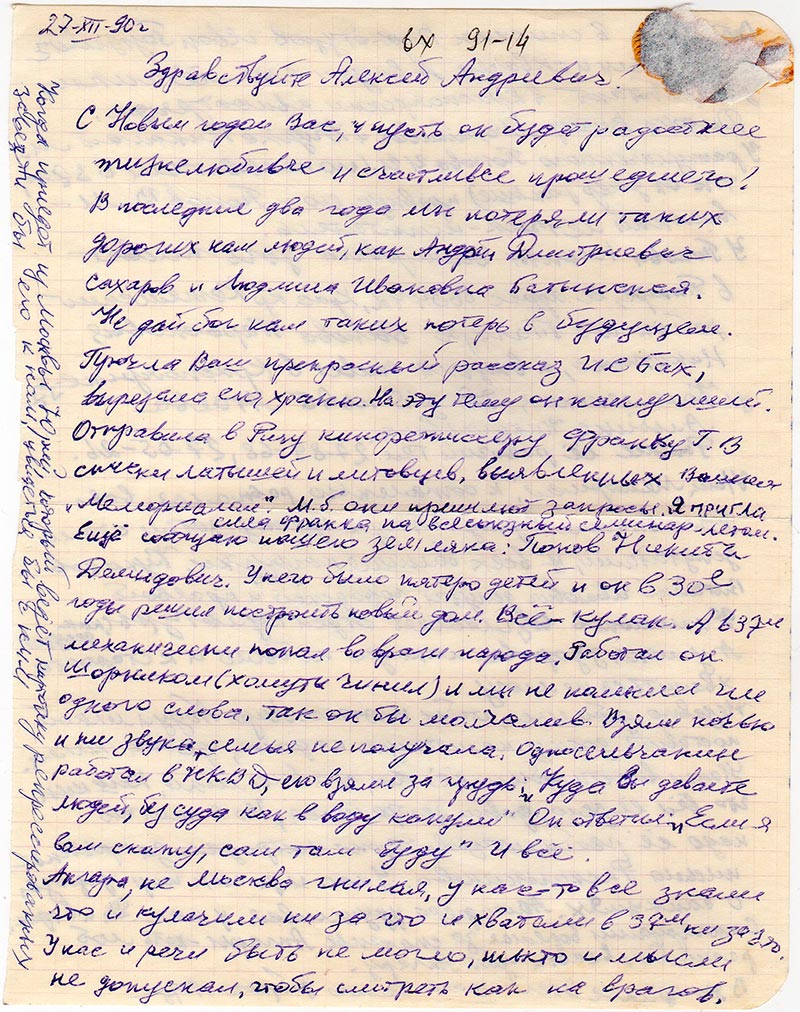 27-XII-90г
вх 91-14
Здравствуйте Алексей Андреевич!
С Новым годом Вас, и пусть он будет радостнее
жизнелюбивее и счастливее прошедшего!
В последние два года мы потеряли таких
дорогих нам людей, как Андрей Дмитриевич
Сахаров и Людмила Ивановна Батынская.
Не дай бог нам таких потерь в будущем.
Прочла Ваш прекрасный рассказ И.С Бах,
вырезала его, храню. На эту тему он наилучший.
Отправила в Ригу кинорежиссеру Франку Г. В
списки латышей и литовцев, выявленных Вашим
„Мемориалом". М.б. они пришлют запросы. Я пригла
сила Франка на всесоюзный семинар-летом.
Ещё сообщаю нашего земляка: Попов Никита
Демидович. У него было пятеро детей и он в 30е
годы решил построить новый дом. Всё - кулак. А в 37м
механически попал во враги народа. Работал он
шорником (хомуты чинил) и мы не помним ни
одного слова, так он был молчалив. Взяли ночью
и ни звука, семья не получала. Односельчанин
работал в НКВД, его взяли за грудь: „Куда вы деваете
людей, без суда как в воду канули" Он ответил: „Если я
вам скажу, сам там буду" И всё.
Ангара, не Москва гнилая, у нас-то все знали
что и кулачим ни за что и хватали в 37м ни за что.
У нас и речи быть не могло, никто и мысли
не допускал, чтобы смотреть как на врагов.
Когда приедет из Москвы Юрий, который ведет картотеку репрессированных
завезти бы его к нам, увидеться бы с ним